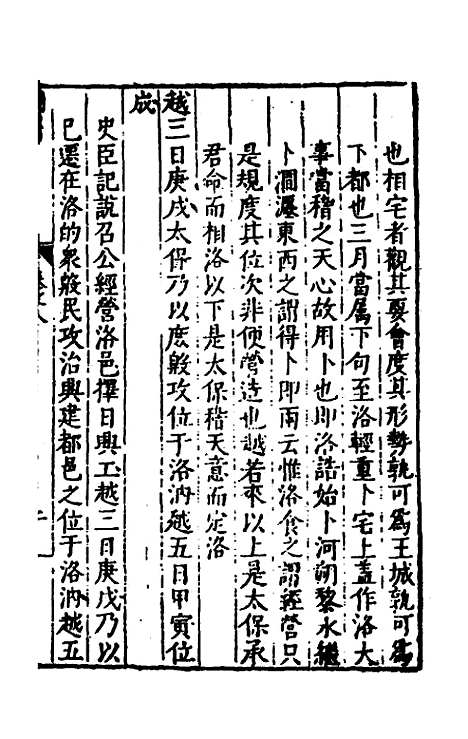 也相宅者觀其要會度其形勢孰可爲王城孰可爲
下都也三月當属下句至洛輕重卜宅上盖作洛大
事當稽之天心故用卜也即洛誥始卜河朔黎水繼
卜澗瀍東西之謂得卜即兩云惟洛食之謂經營只
是規度其位次非便營造也越若來以上是太保承
君命而相洛以下是太保稽天意而定洛
越三日庚戌太保乃以庶殷攻位于洛汭越五日甲寅位
成
史臣記說召公經營洛邑擇日興工越三日庚戊乃以
已遷在洛的衆殷民攻治興建都邑之位于洛汭越五